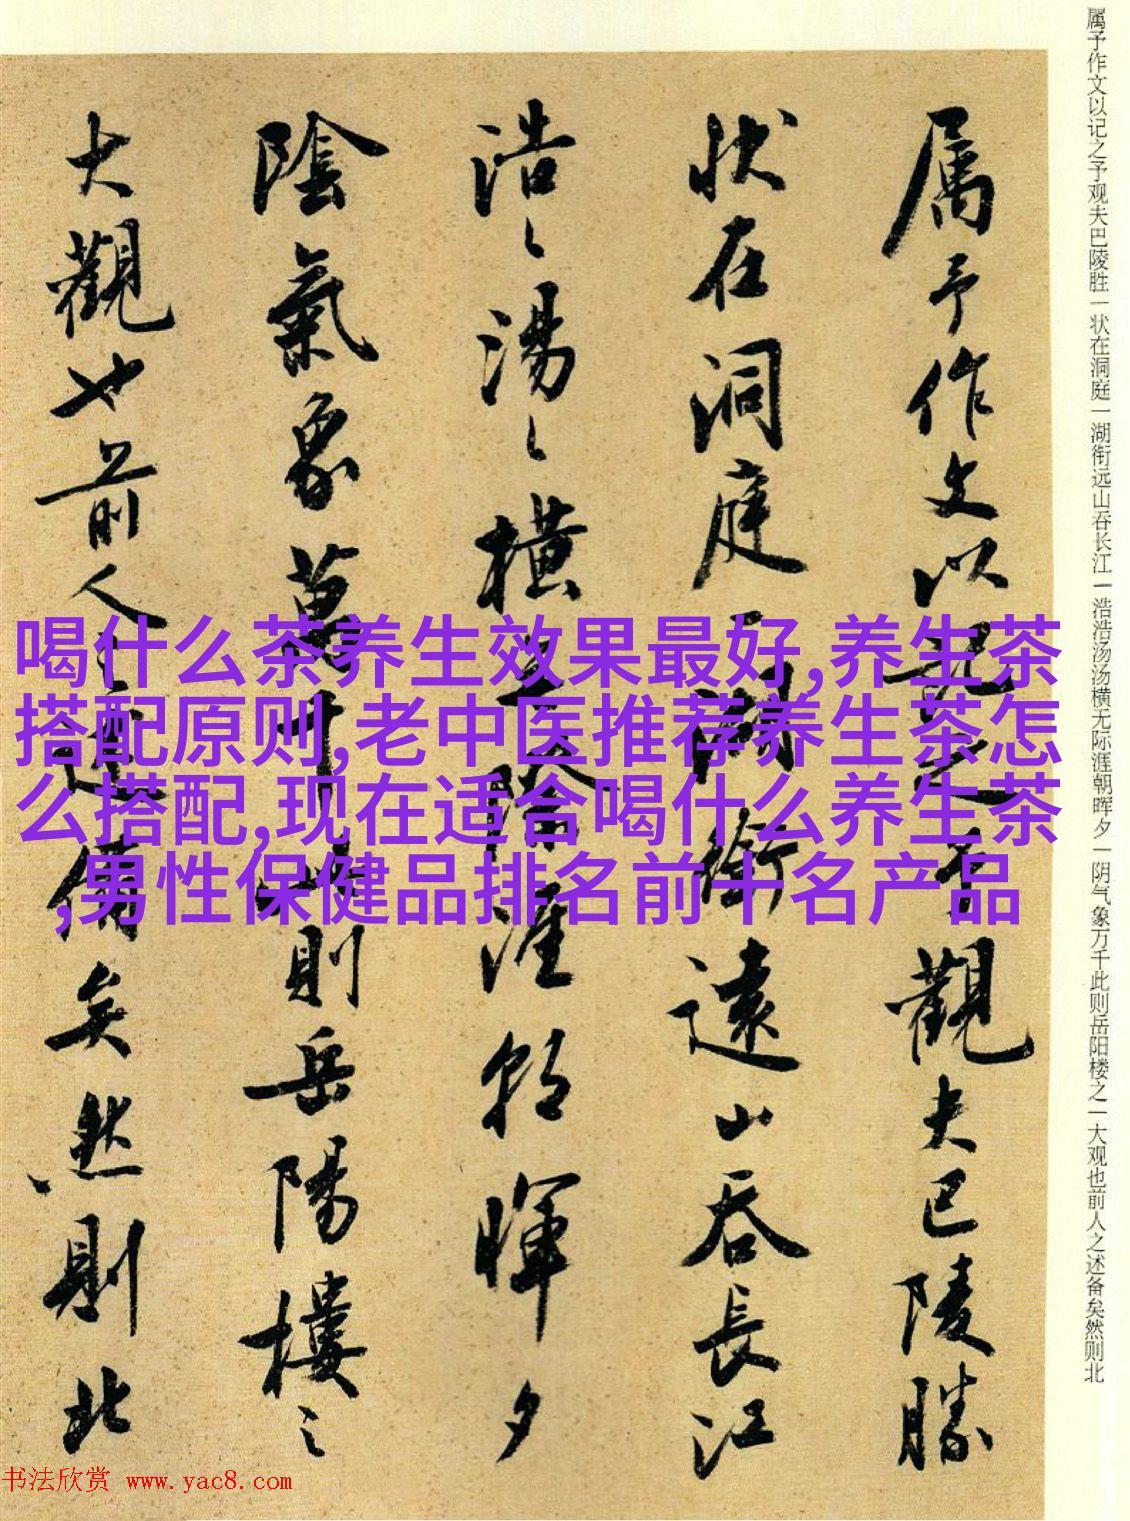 属予作文以记之予观夫巴陵胜一状在洞庭一湖衔远山吞长江一浩浩汤汤横无际涯朝晖夕一阴气象万千此则岳阳楼之一大观也前人之述备矣然则北
属予作文以記之予觀夫巴陵勝
状在洞庭一湖銜遠山吞長江
浩〻湯〻橫無際涯朝暉夕
陰氣象萬千此則岳陽樓之
大觀也前人之述備矣然則北
喝什么茶养生效果最好,养生茶
搭配原则,老中医推荐养生茶怎
么搭配,现在适合喝什么养生茶
,男性保健品排名前十名产品
书法欣赏 www.yac8.com